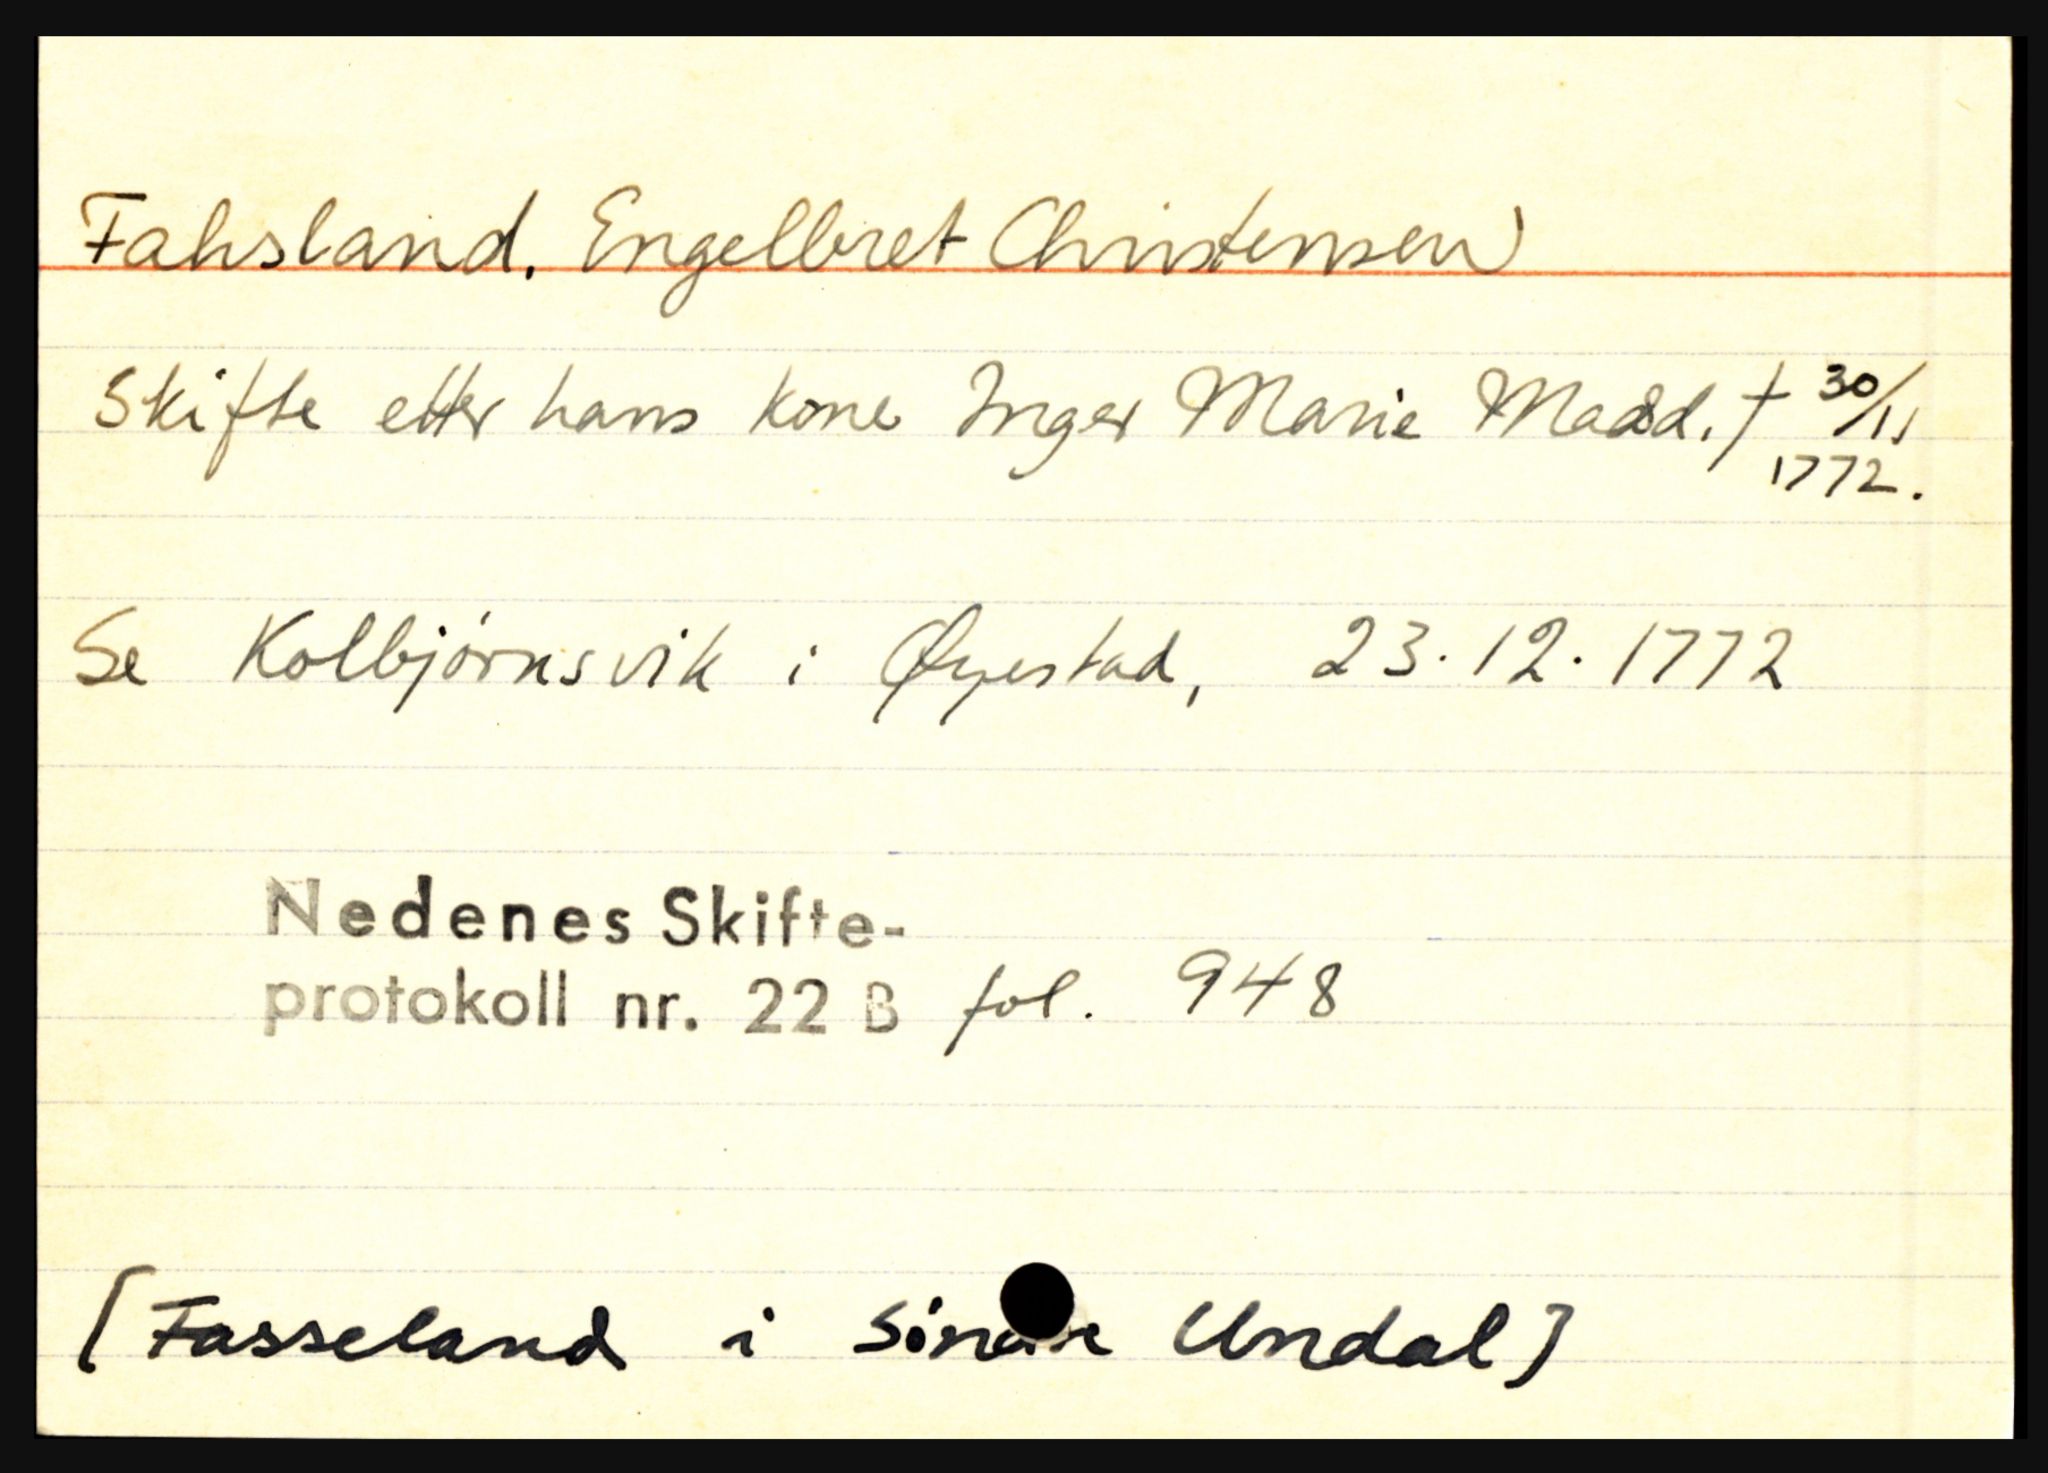 Fahsland. Engelbret Christensen
Skifte etter hans kone Inger Marie Madsd. † 30/11
1772.
Se Kolbjórnsvik i Øyestad, 23.12.1772
Nedenes Skifte-
protokoll nr. 22 B fol. 948
[Fasseland i Undal]